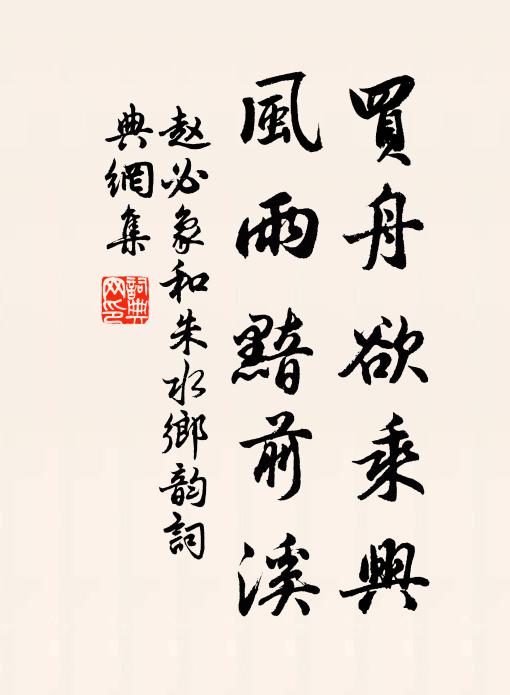 買舟欲乘興
風雨黯前溪
赵必象和朱水鄉韵詞
典網集
詞典網印